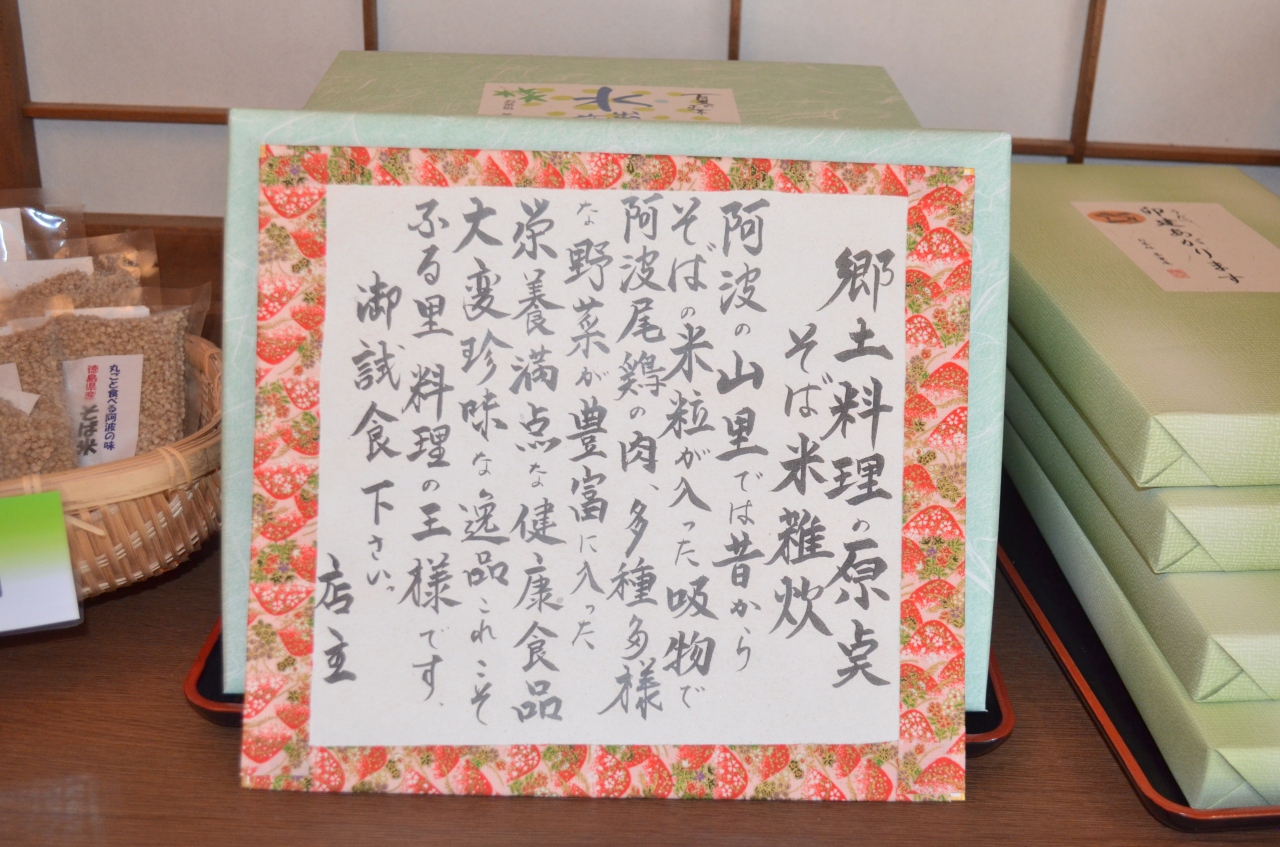 郷土料理の原点
そば米雑炊
阿波の山里では昔から
そばの米粒が入った吸物で
阿波尾鶏の肉、多種多様
な野菜が豊富に入った
栄養満点な健康食品
大変珍味な逸品これこそ
ふる里料理の王様です。
御試食下さい。
店主
丸ごと食べる阿波の味
徳島県産
そば米